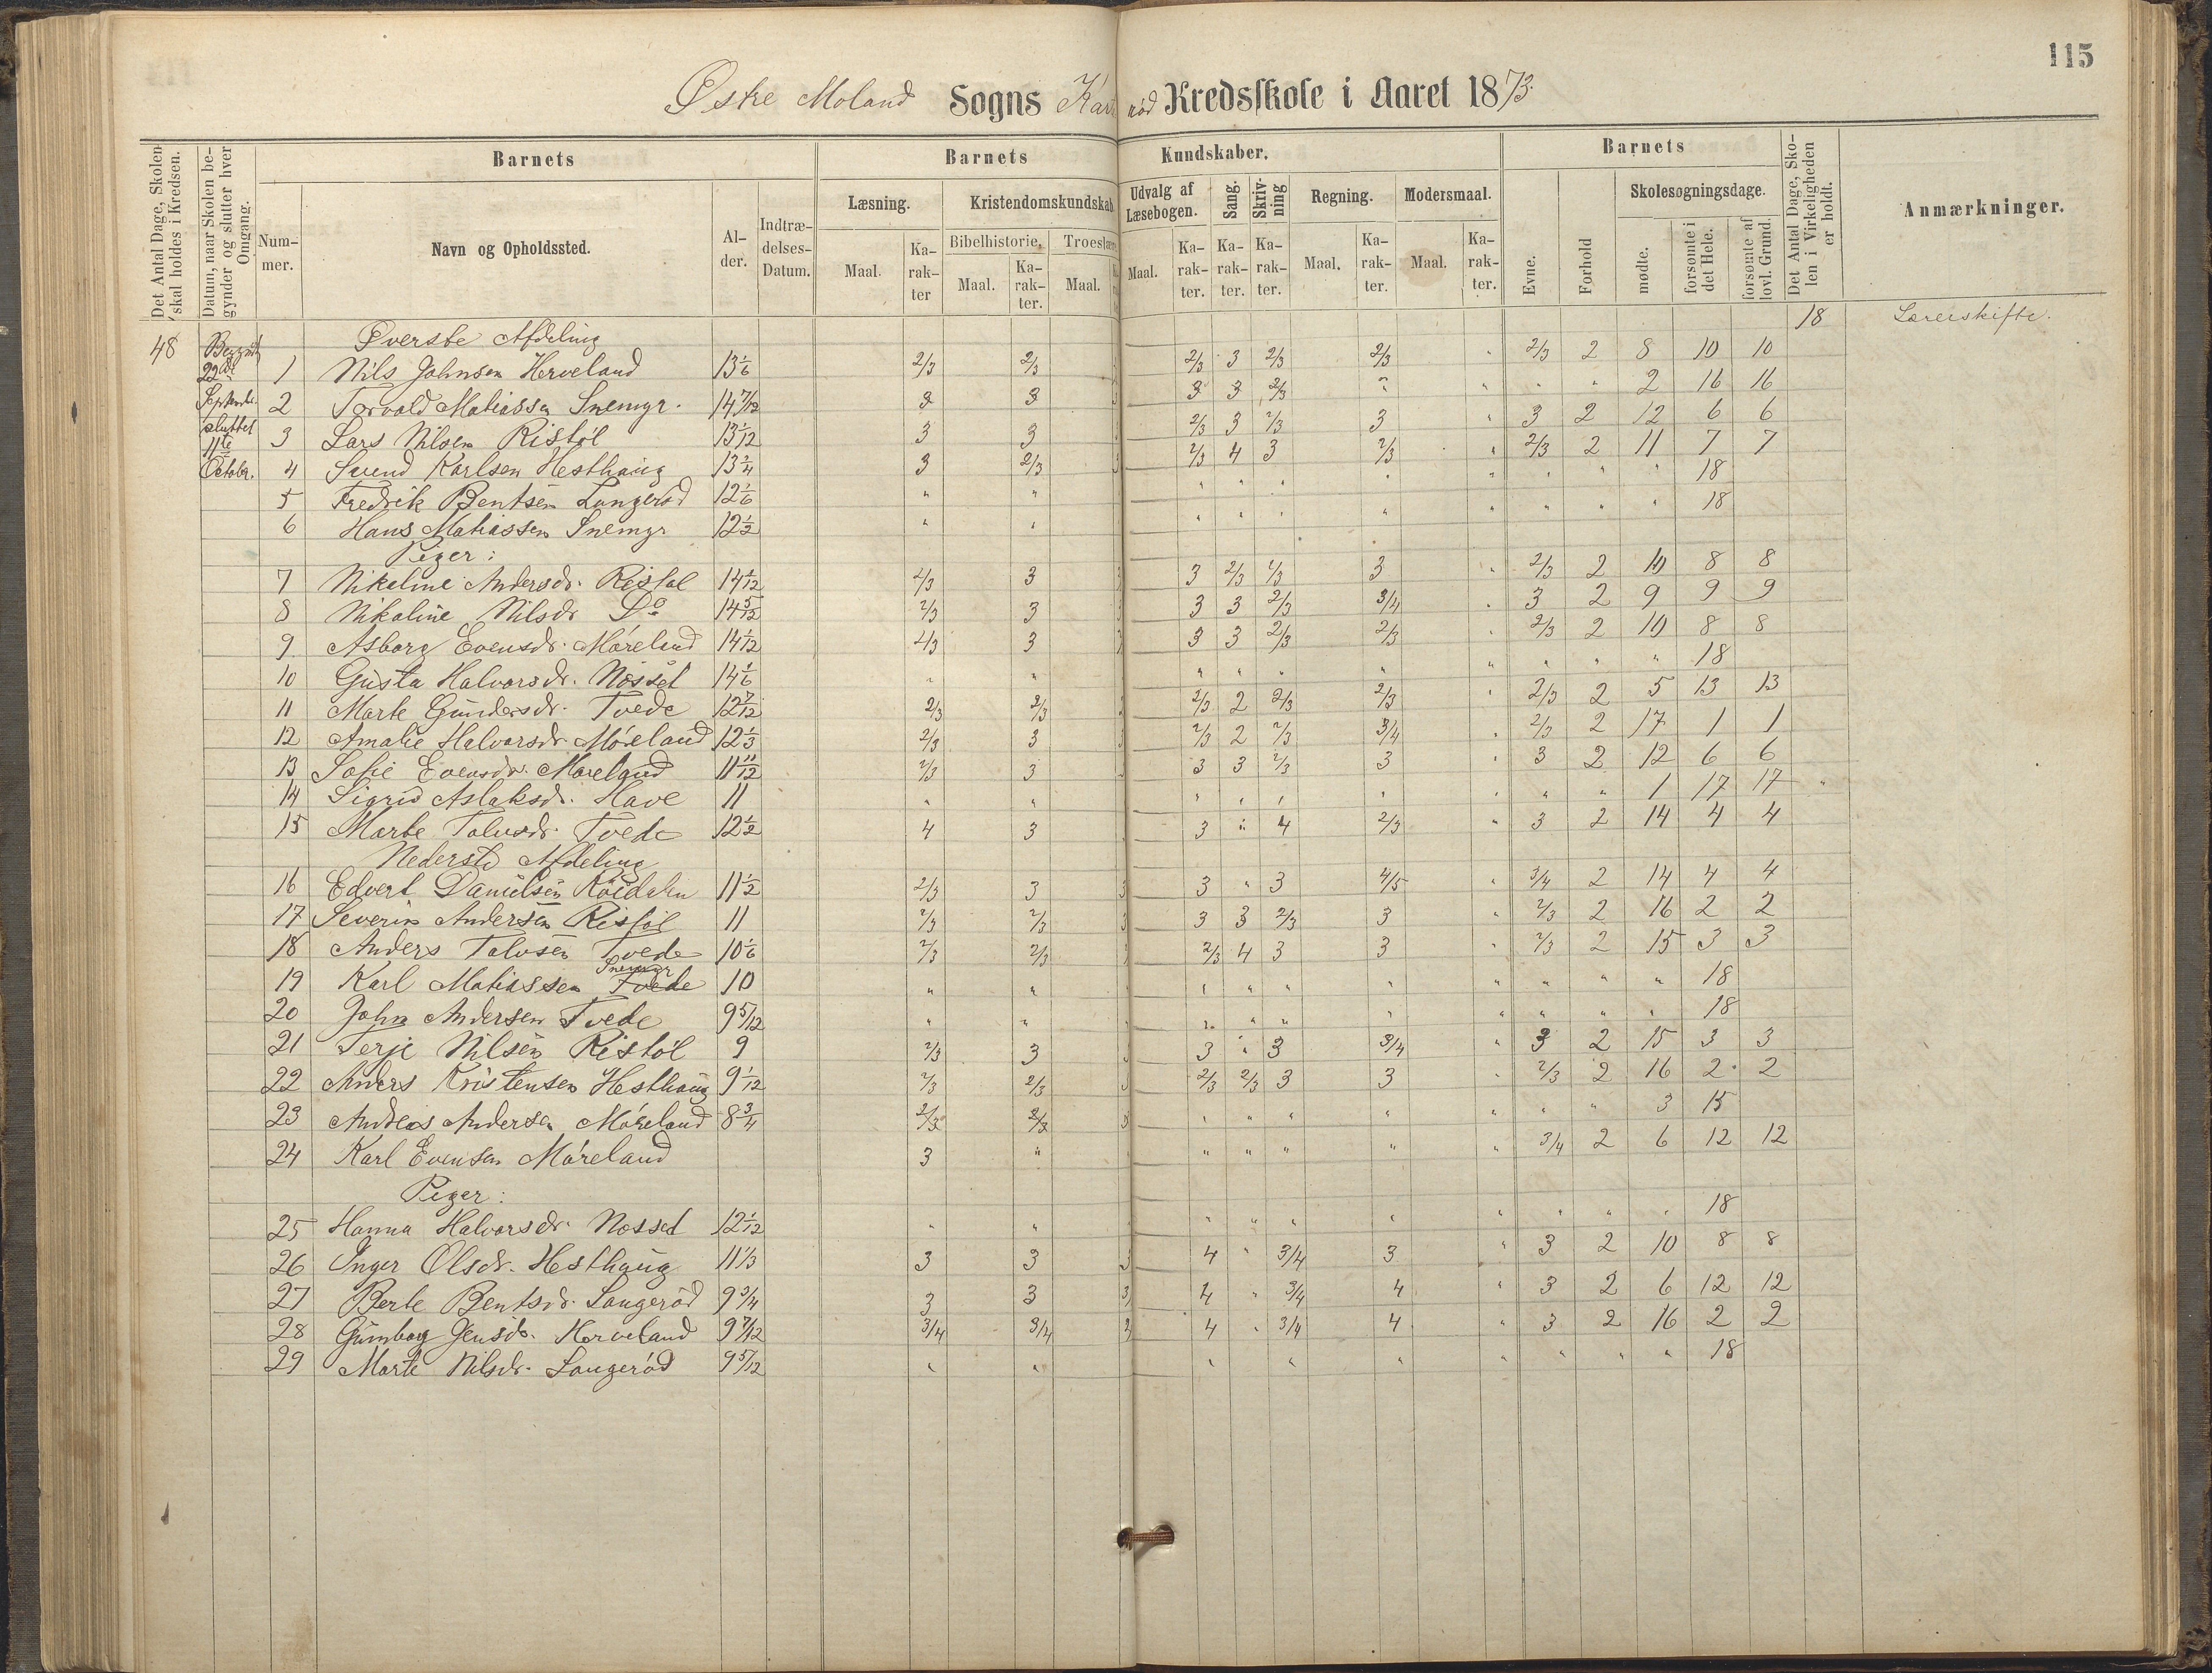 115
Østre Moland Sogns Kredsskole i Aaret 1873.
Det Antal Dage, Skolen skal holdes i Kredsen.
Datum, naar Skolen begynder og slutter hver Omgang.
Barnets
Nummer.
Navn og Opholdssted.
Alder.
Indtrædelses-Datum.
Barnets Kundskaber.
Læsning.
Maal.
Karakter
Kristendomskundskab
Bibelhistorie.
Maal.
Karakter.
Maal.
Udvalg af Læsebogen.
Maal.
Karakter.
Sang.
Karakter.
Skrivning
Karakter.
Regning.
Maal.
Karakter.
Modersmaal.
Maal.
Karakter.
Barnets
Evne.
Forhold
Skolesøgningsdage.
mødte.
forsømte i det Hele.
forsømte af lovl. Grund.
Det Antal Dage, Skolen i Virkeligheden er holdt.
Anmærkninger.
48 Øverste Afdeling 18 Lærerskifte.
22de September sluttet 11te Octobr.
1 Nils Johnsen Herveland 13 1/6 2/3 2/3 2/3 3 2/3 2/3 " 2/3 2 8 10 10
2 Torvald Mathiassen Snemyr. 14 7/12 3 3 3 3 2/3 " " " " 2 16 16
3 Lars Nilsen Ristöl 13 1/12 3 3 2/3 3 2/3 3 " 3 2 12 6 6
4 Svend Karlsen Hesthaug 13 1/4 3 2/3 2/3 4 3 2/3 " 2/3 2 11 7 7
5 Fredrik Bentsen Langeröd 12 1/6 " " " " " " " " " " 18
6 Hans Matiassen Snemyr 12 1/2 " " " " " " " " " " 18
Piger:
7 Nikoline Andersdr. Ristöl 14 1/12 2/3 3 3 3 2/3 2/3 3 " 2/3 2 10 8 8
8 Nikoline Nilsdr Do 14 5/12 2/3 3 3 3 2/3 3/4 " 3 2 9 9 9
9 Asborg Evensdr. Möreland 14 1/12 2/3 3 3 3 3 2/3 2/3 " 2/3 2 10 8 8
10 Gusta Halvorsdr. Nosset 14 1/6 " " " " " " " " " " 18
11 Marte Gundersdr. Tvede 12 7/12 2/3 2/3 2/3 2 2/3 2/3 " 2/3 2 5 13 13
12 Amalie Halvorsdr. Möreland 12 1/3 2/3 3 3 2/3 2 2/3 3/4 " 2/3 2 17 1 1
13 Sofie Evensdr. Möreland 11 11/12 2/3 3 3 3 2/3 3 " 3 2 12 6 6
14 Sigrid Aslaksdr. Have 11 " " " " " " " " " 1 17 17 "
15 Marte Talvesdr. Tvede 12 1/2 4 3 3 " 4 2/3 " 3 2 14 4 4
Nederste Afdeling
16 Edvert Danielsen Röidalen 11 1/2 2/3 3 3 3 " 3 4/5 " 3/4 2 14 4 4
17 Severin Andersen Ristöl 11 2/3 2/3 3 3 3 2/3 3 " 2/3 2 16 2 2
18 Anders Talvsen Tvede 10 1/6 2/3 2/3 2/3 4 3 3 " 2/3 2 15 3 3
19 Karl Matiassen Tvede Snemyr 10 " " " " " " " " " " 18
20 John Andersen Tvede 9 5/12 " " " " " " " " " " 18
21 Terje Nilsen Ristöl 9 2/3 3 3 3 " 3 3/4 " 3 2 15 3 3
22 Anders Kristensen Hesthaug 9 1/12 2/3 2/3 3 2/3 2/3 3 3 " 2/3 2 16 2 2
23 Andreas Andersen Möreland 8 3/4 2/3 2/3 3 " " " " " " " 3 15
24 Karl Evensen Möreland 3 " " " " " " 3/4 2 6 12 12
Piger:
25 Hanna Halvorsdr. Nosset 12 1/12 " " " " " " " " " " 18
26 Inger Olsdr. Hesthaug 11 1/3 3 3 3 4 " 3/4 3 " 3 2 10 8 8
27 Berte Bentsdr. Langeröd 9 3/4 3 3 3 4 " 3/4 4 " 3 2 6 12 12
28 Gumborg Jensdr. Herveland 9 7/12 3/4 3/4 4 " 3/4 4 " 3 2 16 2 2
29 Marte Nilsdr. Langeröd 9 5/12 " " " " " " " " " 18